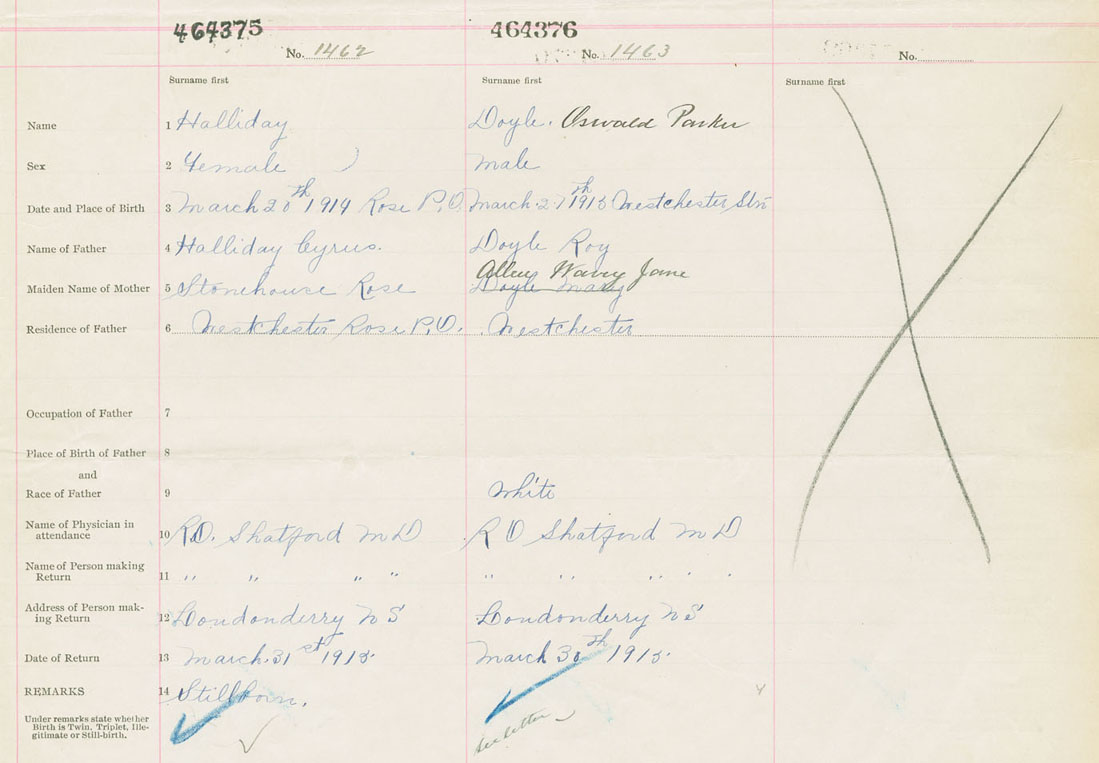 464375 464376
No. 1462 No. 1463 No.
Surname first Surname first Surname first
Name 1 Halliday Doyle. Oswald Parker
Sex 2 Female male
Date and Place of Birth 3 March 20th 1914 Rose P.O. March 27th 1915 Westchester Stn
Name of Father 4 Halliday Cyrus. Doyle Roy
Allen Wavey Jane
Maiden Name of Mother 5 Stonehouse Rose Doyle Mary
Residence of Father 6 Westchester Rose P.O. Westchester
Occupation of Father 7
Place of Birth of Father 8
and
Race of Father 9 White
Name of Physician in
attendance 10 R.O. Shatford M D R O Shatford M D
Name of Person making
Return 11 " " " " " " " " "
Address of Person mak-
ing Return 12 Londonderry N S Londonderry N S
Date of Return 13 March. 31st 1915. March 30th 1915.
REMARKS 14 Stillborn.
Under remarks state whether
Birth is Twin, Triplet, Ille-
gitimate or Still-birth.
see letter